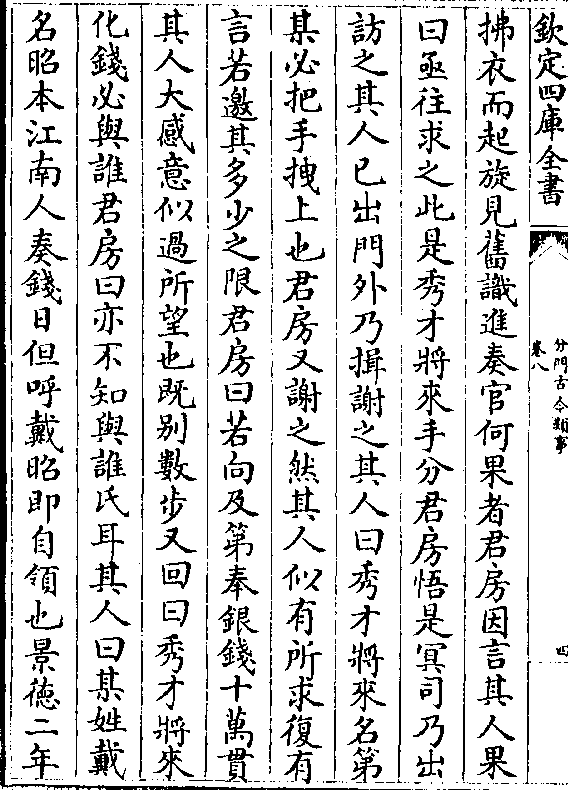 欽定四庫全書
分門古今類事
卷八
四
拂衣而起旋見舊識進奏官何果者君房因言其人果
曰亟往求之此是秀才將來手分君房悟是冥司乃出
訪之其人已出門外乃揖謝之其人曰秀才將來名第
某必把手拽上也君房又謝之然其人似有所求復有
言若邀其多少之限君房曰若向及第奉銀錢十萬貫
其人大感意似過所望也既别數步又回曰秀才將來
化錢必與誰君房曰亦不知與誰氏耳其人曰某姓戴
名昭本江南人奏錢日但呼戴昭即自領也景徳二年